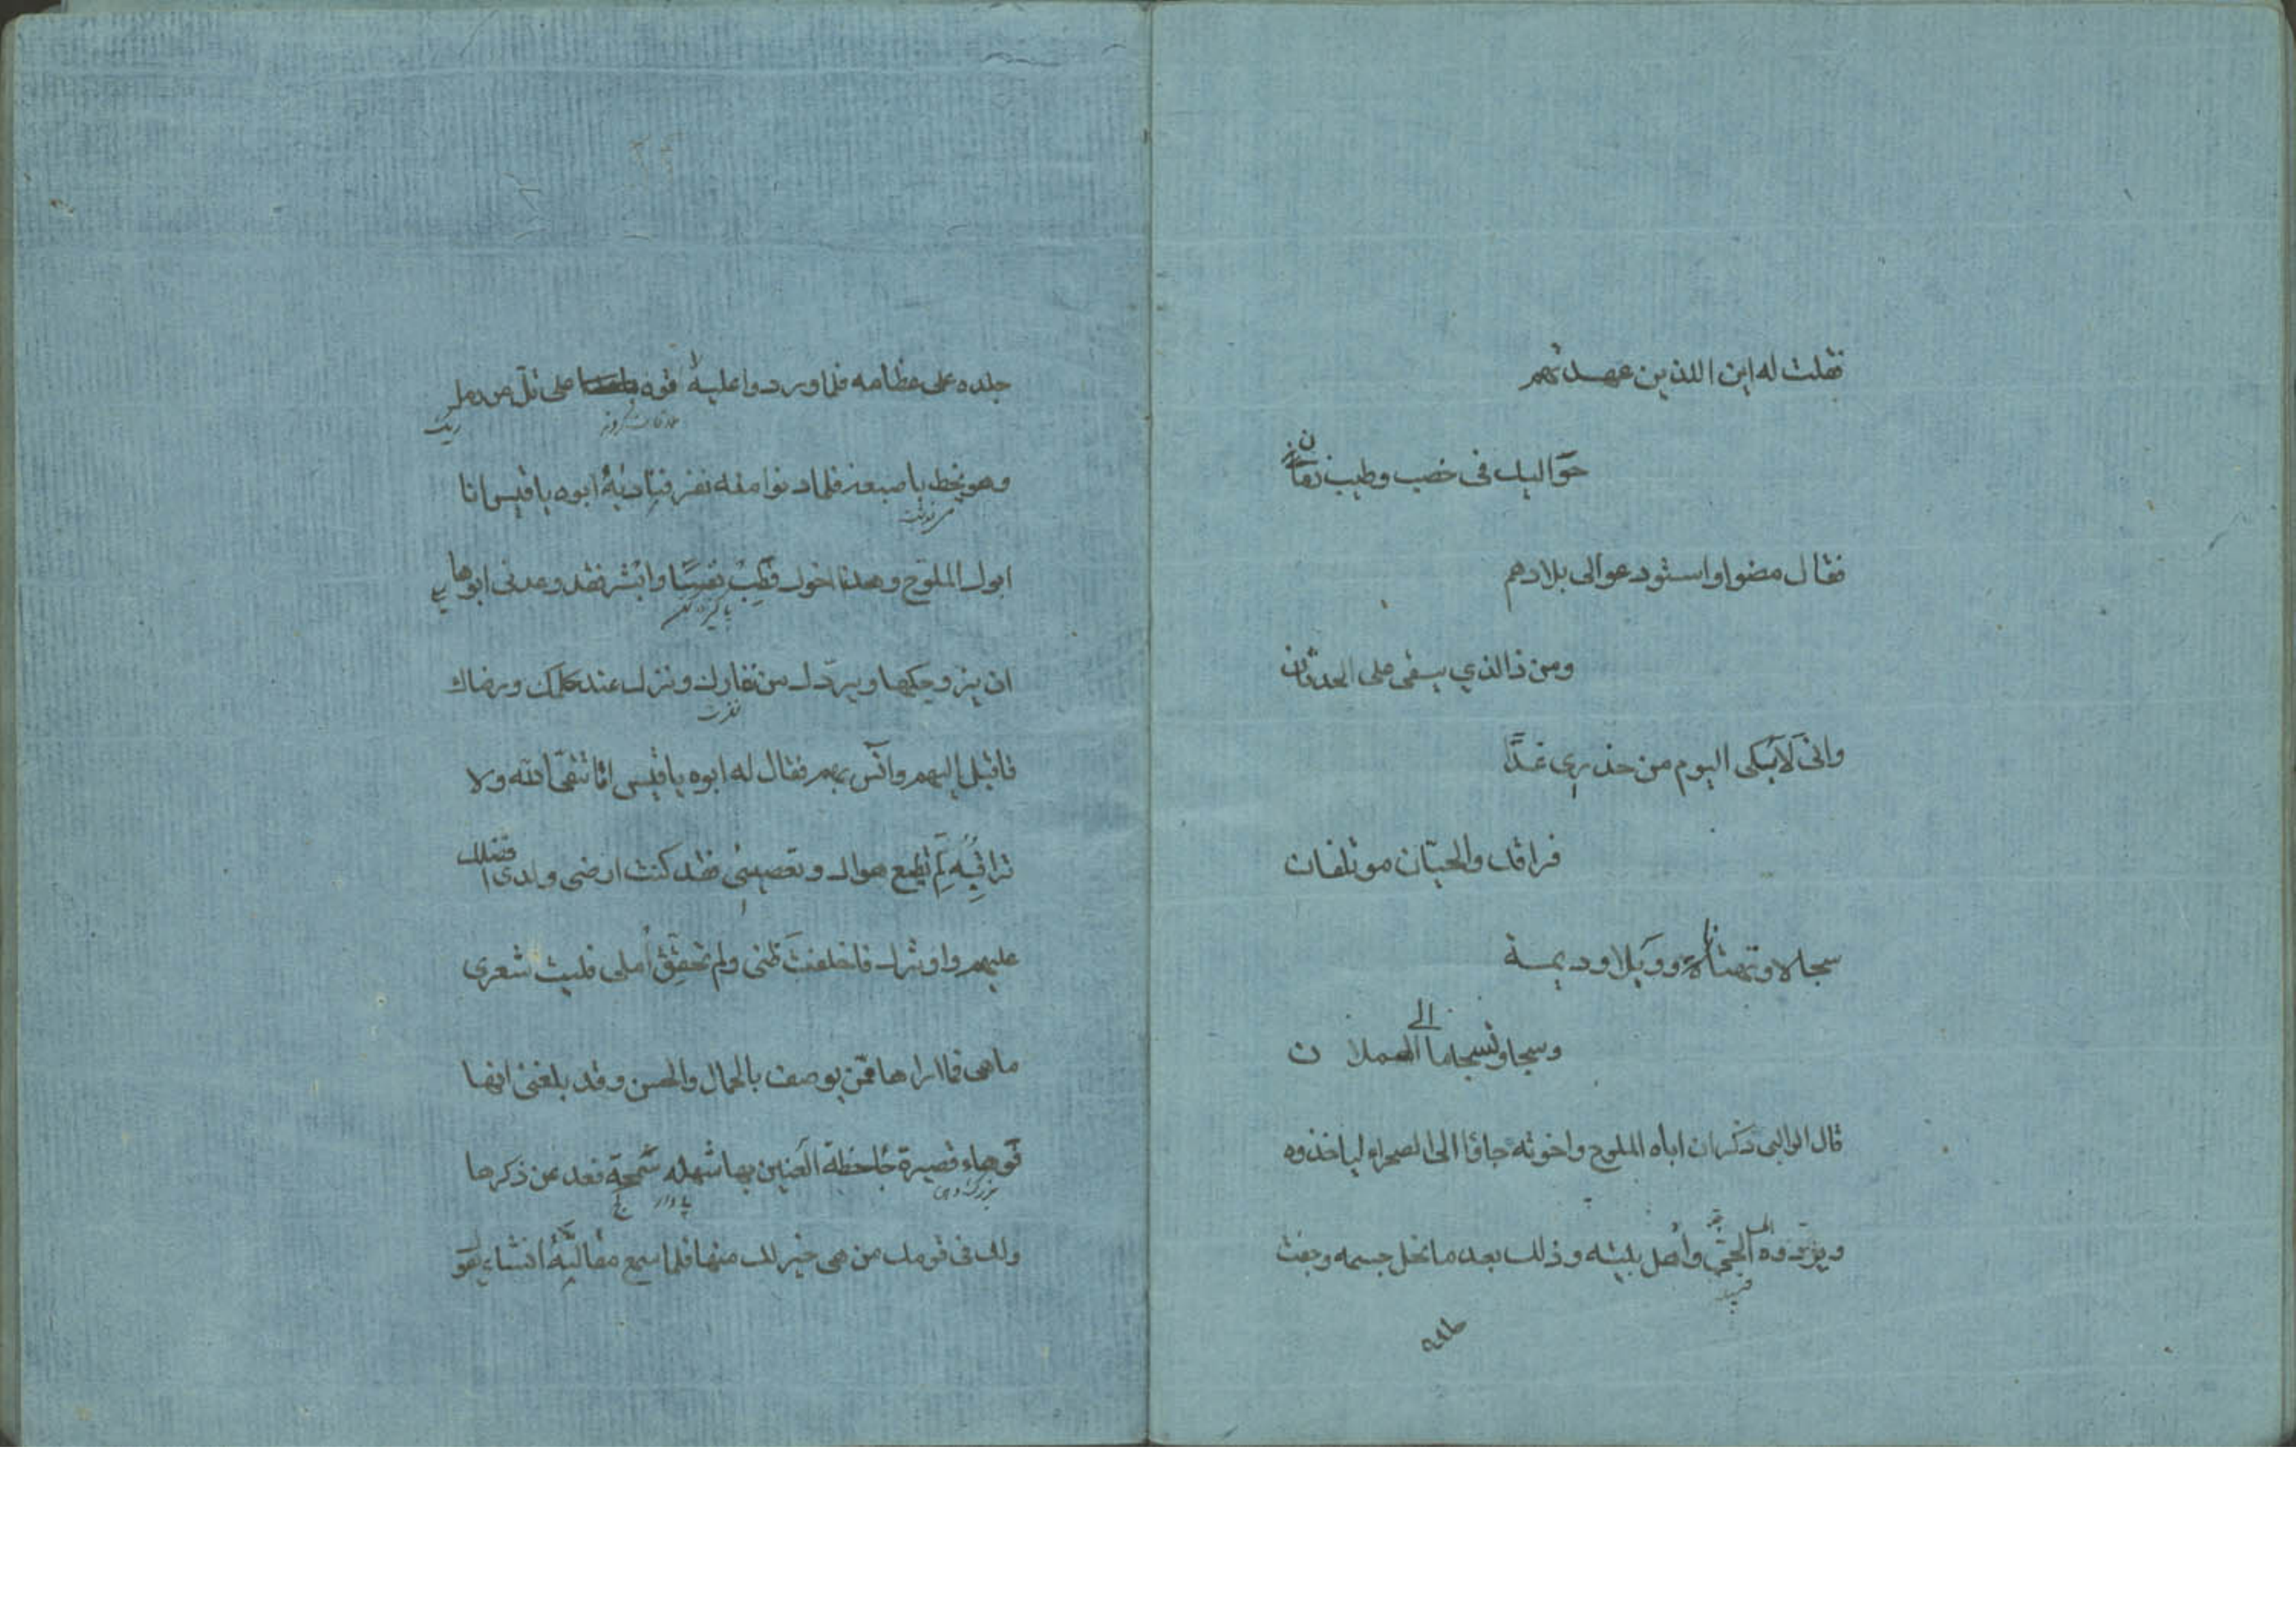 فقلت له این الذین عهدتهم
حوالیك فی خصب وطیب زمان
فقال مضوا واستودعوالی بلادهم
ومن ذا الذي یبقی علی الحدثان
وانی لابكی الیوم من حذری غدًا
فراقك والحیّان موتلفان
سجالا وتهتانا ووبلا ودیمة
وسجا وتسجاما الی هملان
قال الوالبی ذكر ان اباه الملوح واخوته جاؤا الی الصحراء لیاخذوه
ویردّوه الی الحیّ وأهل بلیته وذلك بعد ما نحل جسمه وجفت
جلده
جلده علی عظامه فلما وردوا علیه لاقوه علی تلّ من رمل
ریك
وهو یخط باصبعه فلما دنوا منه نفر فنادیهُ ابوه یا قیس انا
می نوشت
ابوك الملوح وهذا اخوك فطِبْ نفسًا وابشر فقد وعدنی ابوها
ان یزوجكها ویردّك من نفارك ونزل عند حكمك ورضاك
نفرت
فاقبل الیهم وآنس بهم فقال له ابوه یا قیس اما تتقی الله ولا
تراقبه لِمَ تطیع هواك وتعصینی فقد كنت ارضی ولدی افضلك
علیهم واوثرك فاخلفت ظنی ولم تحقق أملی فلیت شعری
ما هی فما اراها ممّن یوصف بالجمال والحسن وقد بلغنی انها
فوهاء قصیرة جاحظة العینین بها شهله سمجة فعد عن ذكرها
بزرك دهن
ولك فی قومك من هی خیر لك منها فلما سمع مقالتهُ انشاء یقول